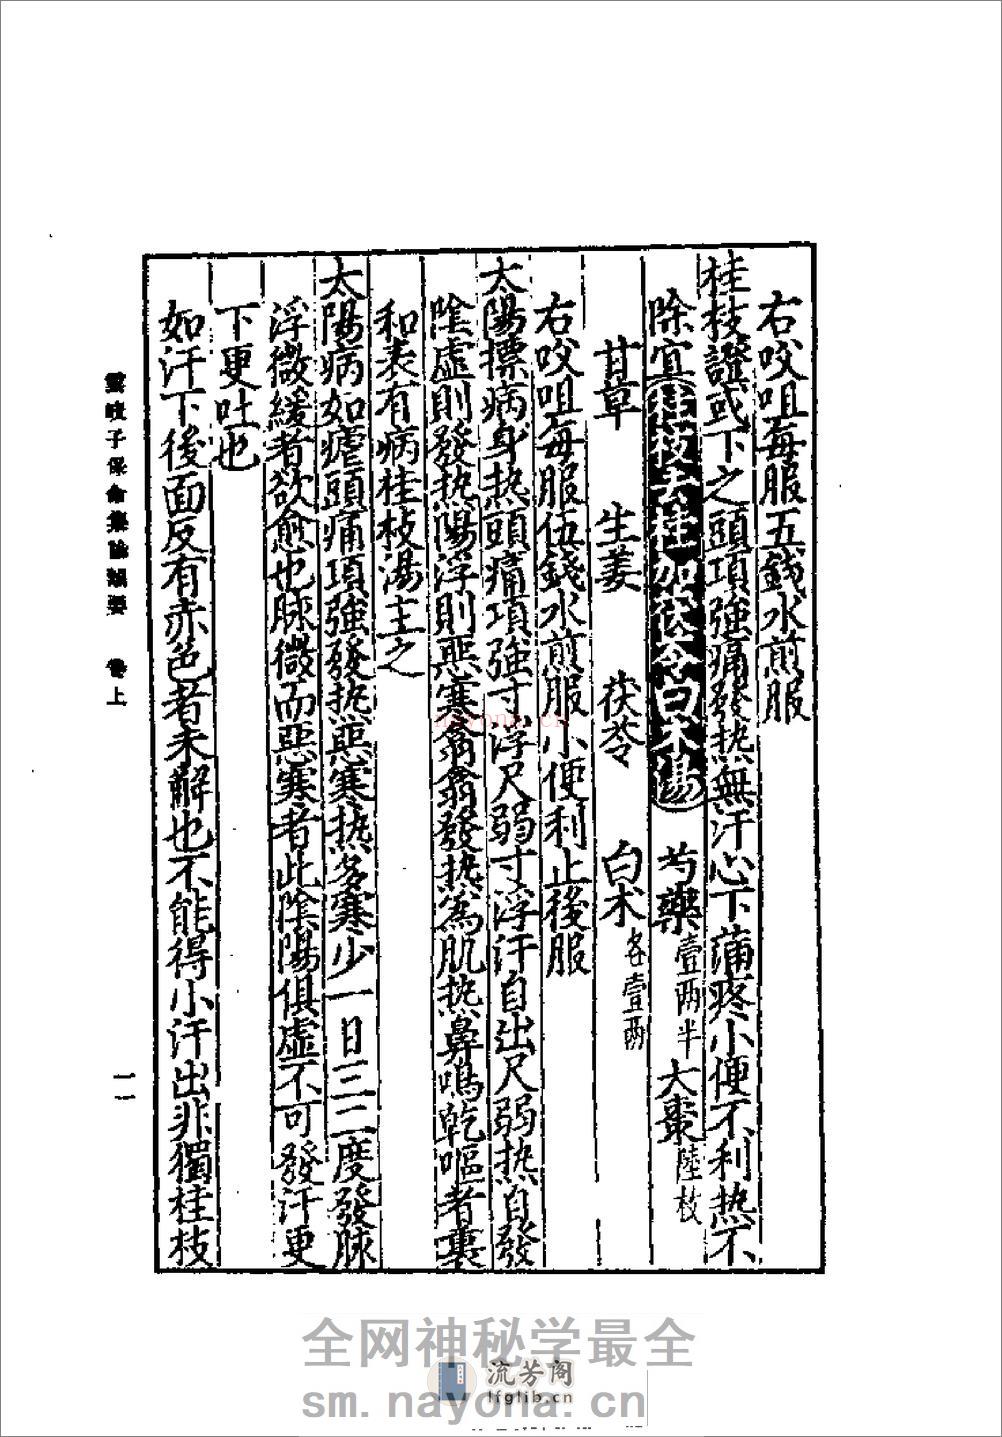 右㕮咀每服五錢水煎服
桂枝證或下之頭項強痛發热無汗心下蒲疼小便不利热不
除宜桂枝去桂加茯苓白术湯 芍藥壹两半 大棗陸枚
甘草 生姜 茯苓 白术各壹两
右㕮咀每服伍錢水煎服小便利止後服
太陽摽病身热頭痛項強寸浮尺弱寸浮汗自出尺弱热自發
陰虛則發热陽浮則惡寒翕翕發热為肌热鼻鳴乾嘔者裏
和表有病桂枝湯主之
太陽病如瘧頭痛項強發热惡寒热多寒少一日三二度發脉
浮微緩者欲愈也脉微而惡寒者此陰陽俱虛不可發汗更
下更吐也
如汗下後面反有赤色者未解也不能得小汗出非獨桂枝
雲岐子保命集論類要 卷上
一一
nayona.cn
全网神秘学最全
流芳阁
lfglib.cn
sm.nayona.cn